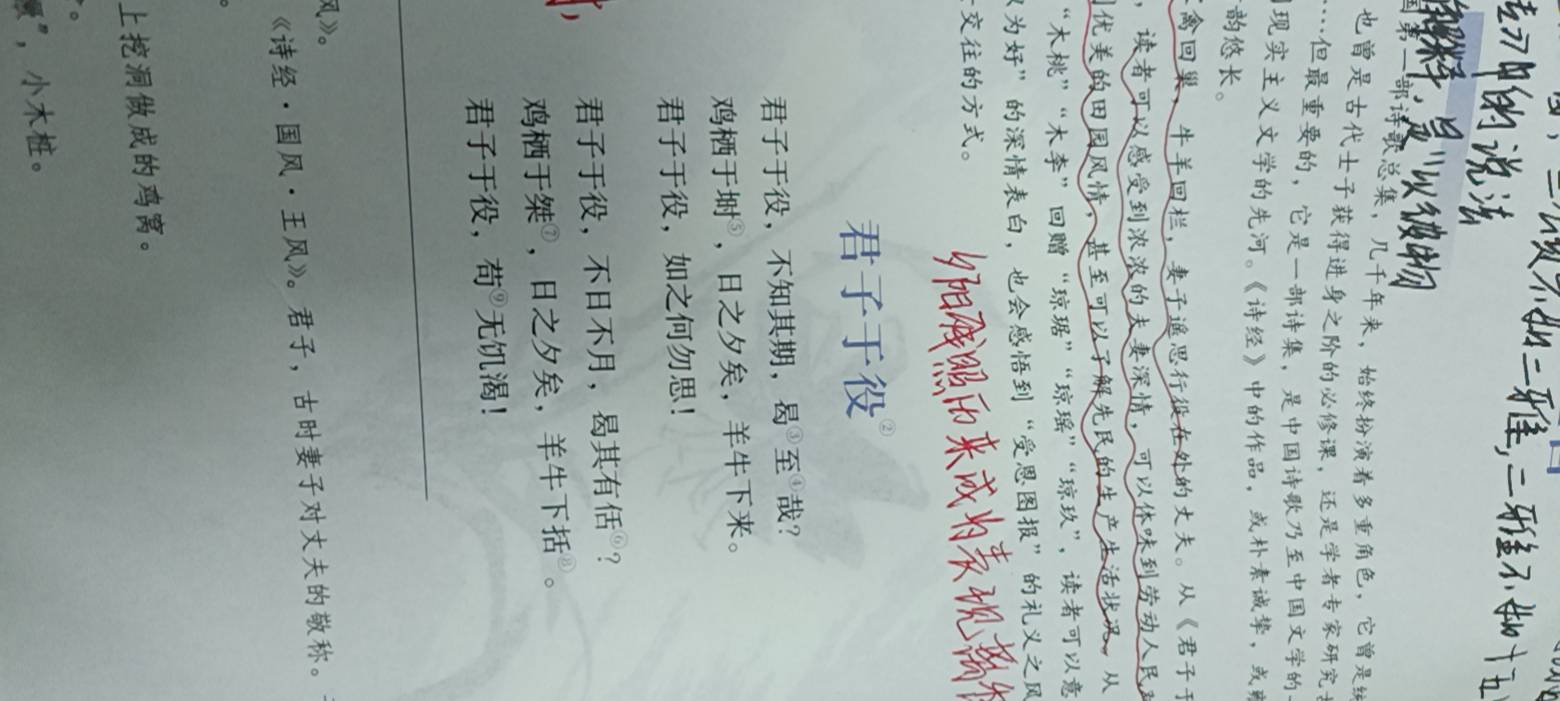 传》中的说法
二雅, 二雅不如十五
解释, 是以彼物
国第一部诗歌总集, 几千年来, 始终扮演着多重角色, 它曾是
也曾是古代士子获得进身之阶的必修课, 还是学者专家研究
……但最重要的, 它是一部诗集, 是中国诗歌乃至中国文学的
现实主义文学的先河。《诗经》中的作品, 或朴素诚挚, 或
韵悠长。
禽回巢, 牛羊回栏, 妻子遥思行役在外的丈夫。从《君子于
, 读者可以感受到浓浓的夫妻深情, 可以体味到劳动人民
优美的田园风情, 甚至可以了解先民的生产生活状况。从
“木桃”“木李”回赠“琼琚”“琼瑶”“琼玖”, 读者可以意
以为好”的深情表白, 也会感悟到“受恩图报”的礼义之风
交往的方式。
夕阳
成为表现离
君子于役②
君子于役, 不知其期, 曷③至④哉?
鸡栖于埘⑤, 日之夕矣, 羊牛下来。
君子于役, 如之何勿思!
君子于役, 不日不月, 曷其有佸⑥?
鸡栖于桀⑦, 日之夕矣, 羊牛下括⑧。
君子于役, 苟⑨无饥渴!
风》。
《诗经·国风·王风》。君子, 古时妻子对丈夫的敬称。
上挖洞做成的鸡窝。
”, 小木桩。